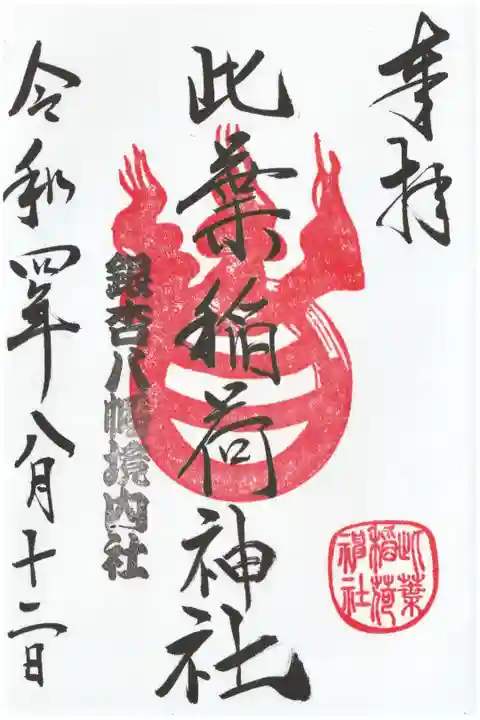 奉拝
此葉稲荷神社
銀杏八幡境内社
令和四年八月十二日
此葉
稲荷
神社